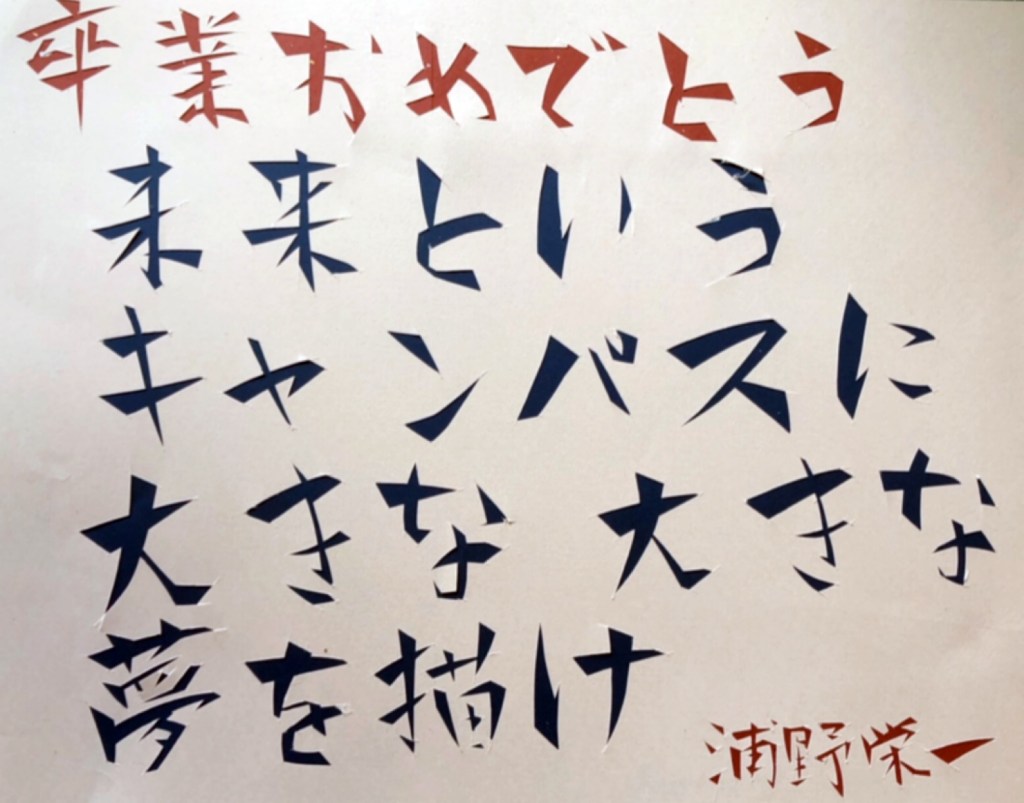 卒業おめでとう
未来という
キャンバスに
大きな 大きな
夢を描け
浦野栄一